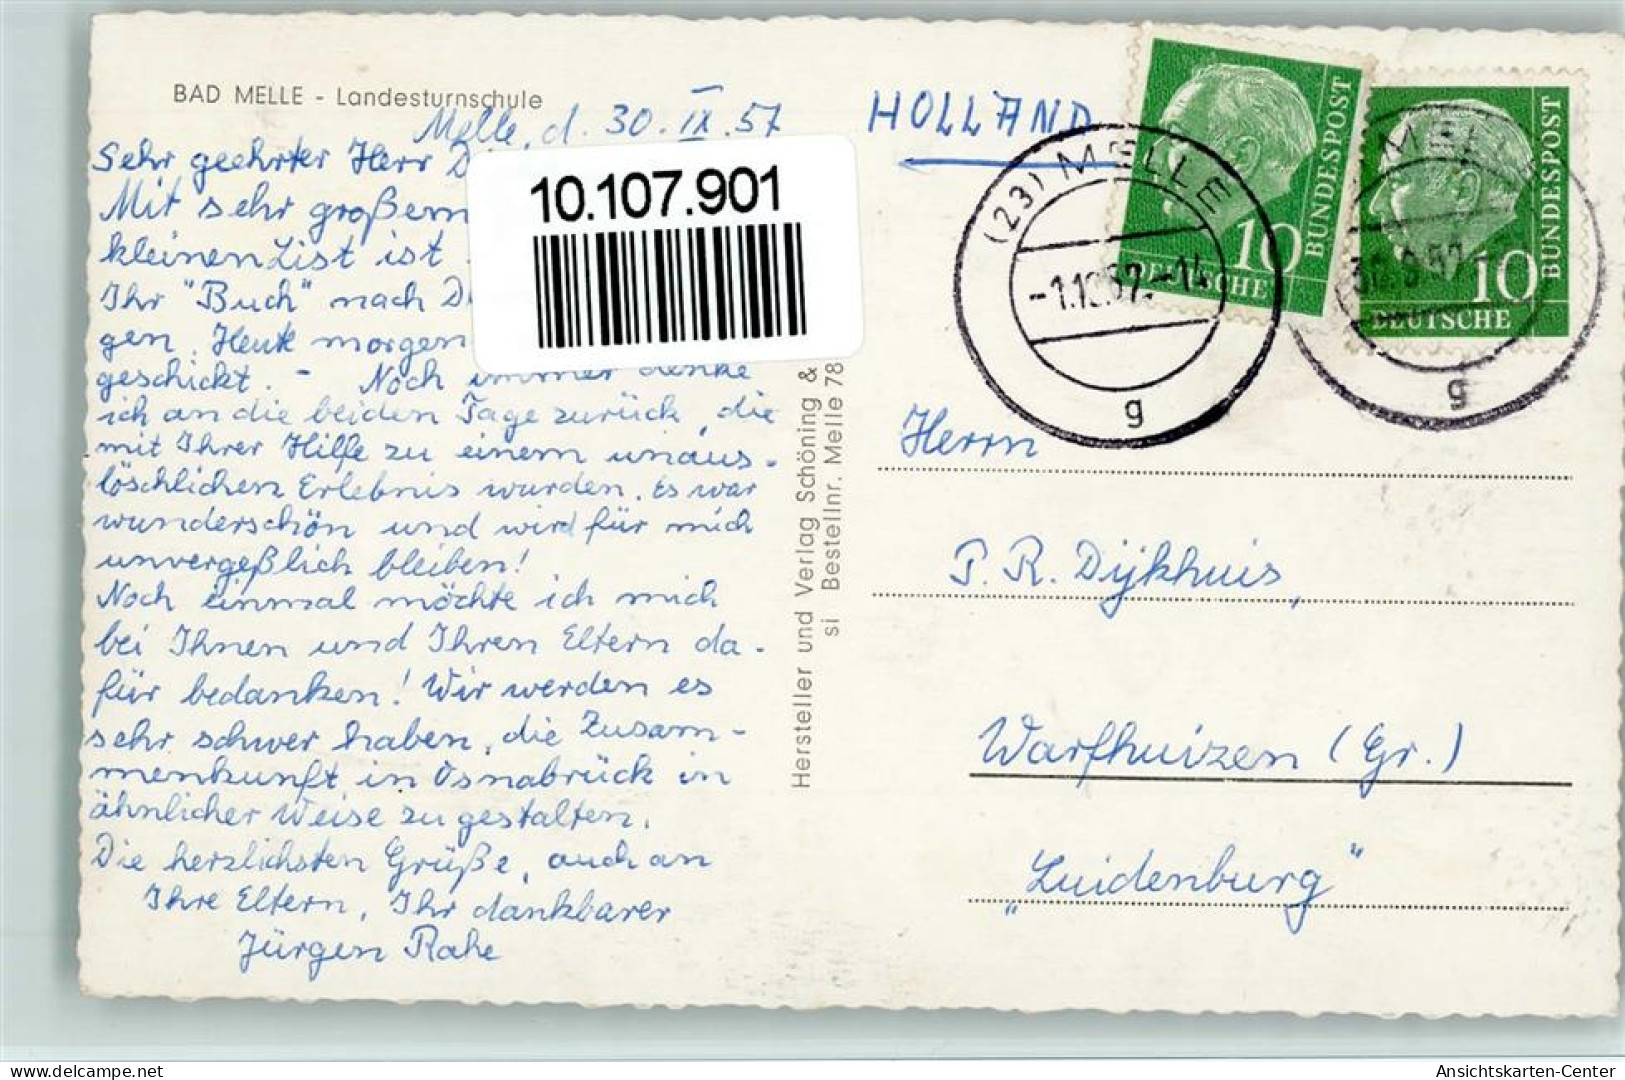 BAD MELLE - Landesturnschule
Melle, d. 30. IX. 57
Sehr geehrter Herr
Mit sehr großem
kleinen List ist
Ihr "Buch" nach
gen. Heute morgen
geschickt. - Noch immer denke
ich an die beiden Tage zurück, die
mit Ihrer Hilfe zu einem unaus-
löschlichen Erlebnis wurden. Es war
wunderschön und wird für mich
unvergeßlich bleiben!
Noch einmal möchte ich mich
bei Ihnen und Ihren Eltern da-
für bedanken! Wir werden es
sehr schwer haben, die Zusam-
menkunft in Osnabrück in
ähnlicher Weise zu gestalten.
Die herzlichsten Grüße, auch an
Ihre Eltern, Ihr dankbarer
Jürgen Rahe
10.107.901
Hersteller und Verlag Schöning &
si Bestellnr. Melle 78
HOLLAND
(23) MELLE
-1.10.57.-14
g
10
BUNDESPOST
DEUTSCHE
MELLE
30.9.57
g
10
BUNDESPOST
DEUTSCHE
Herrn
P. R. Dijkhuis,
Warfhuizen (Gr.)
„Luidenburg"
Ansichtskarten-Center